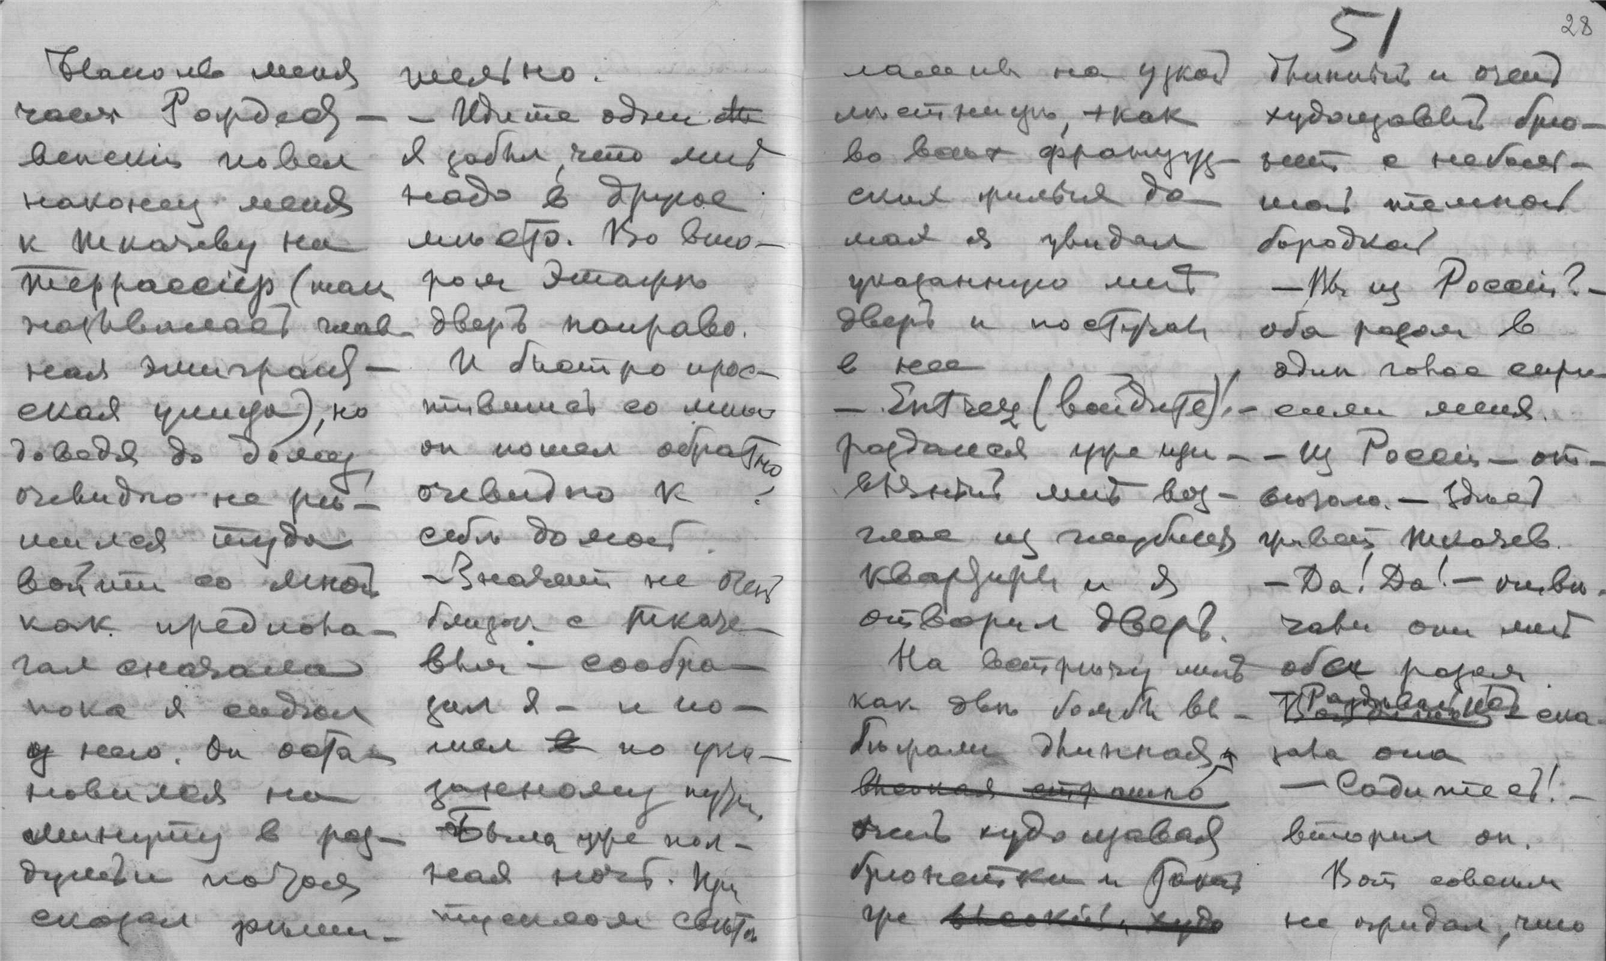 51
28
меня
часа Гордее-
венский повел
наконец меня
к Ткачеву на
Террассьер (так
называлась глав-
ная эмигрант-
ская улица), но
доведя до дому,
очевидно не рѣ-
шился туда
войти со мной
как предпола-
гал сначала
пока я сидѣл
у него. Он оста-
новился на
минуту в раз-
думьи и потом
сказал рѣши-
тельно.
— Идите один
Я забыл, что мнѣ
надо в другое
мѣсто. Во вто-
ром этажѣ
дверь направо.
И быстро прос-
тившись со мною
он пошел обратно
очевидно к
себѣ домой.
— Значит не очень
близок с Ткаче-
вым — сообра-
зил я — и по-
шел по ука-
занному пути.
Была уже пол-
ная ночь. При
тусклом свѣтѣ
лампы на узкой
лѣстницѣ, как
во всѣх француз-
ских жилых до-
мах я увидал
указанную мнѣ
дверь и постучал
в нее
— Entrez (войдите)! —
раздался уже
мнѣ воз-
глас из глубины
квартиры и я
отворил дверь.
На встрѣчу мнѣ
как двѣ бомбы вы-
бѣжали длинная
высокая страшно
очень худощавая
брюнетка и такой
же высокий, худо
длинный и очень
худощавый брю-
нет с неболь-
шой темной
бородкой
— Вы из России? —
оба разом в
один голос спро-
сили меня.
— Из России — от-
вѣтил. — Здѣсь
живет Ткачев.
— Да! Да! — отвѣ-
чали они мнѣ
оба разом.
Раздѣвайтесь — ска-
зала она
— Садитесь! —
вторил он.
Вот совсем
не ожидал, что